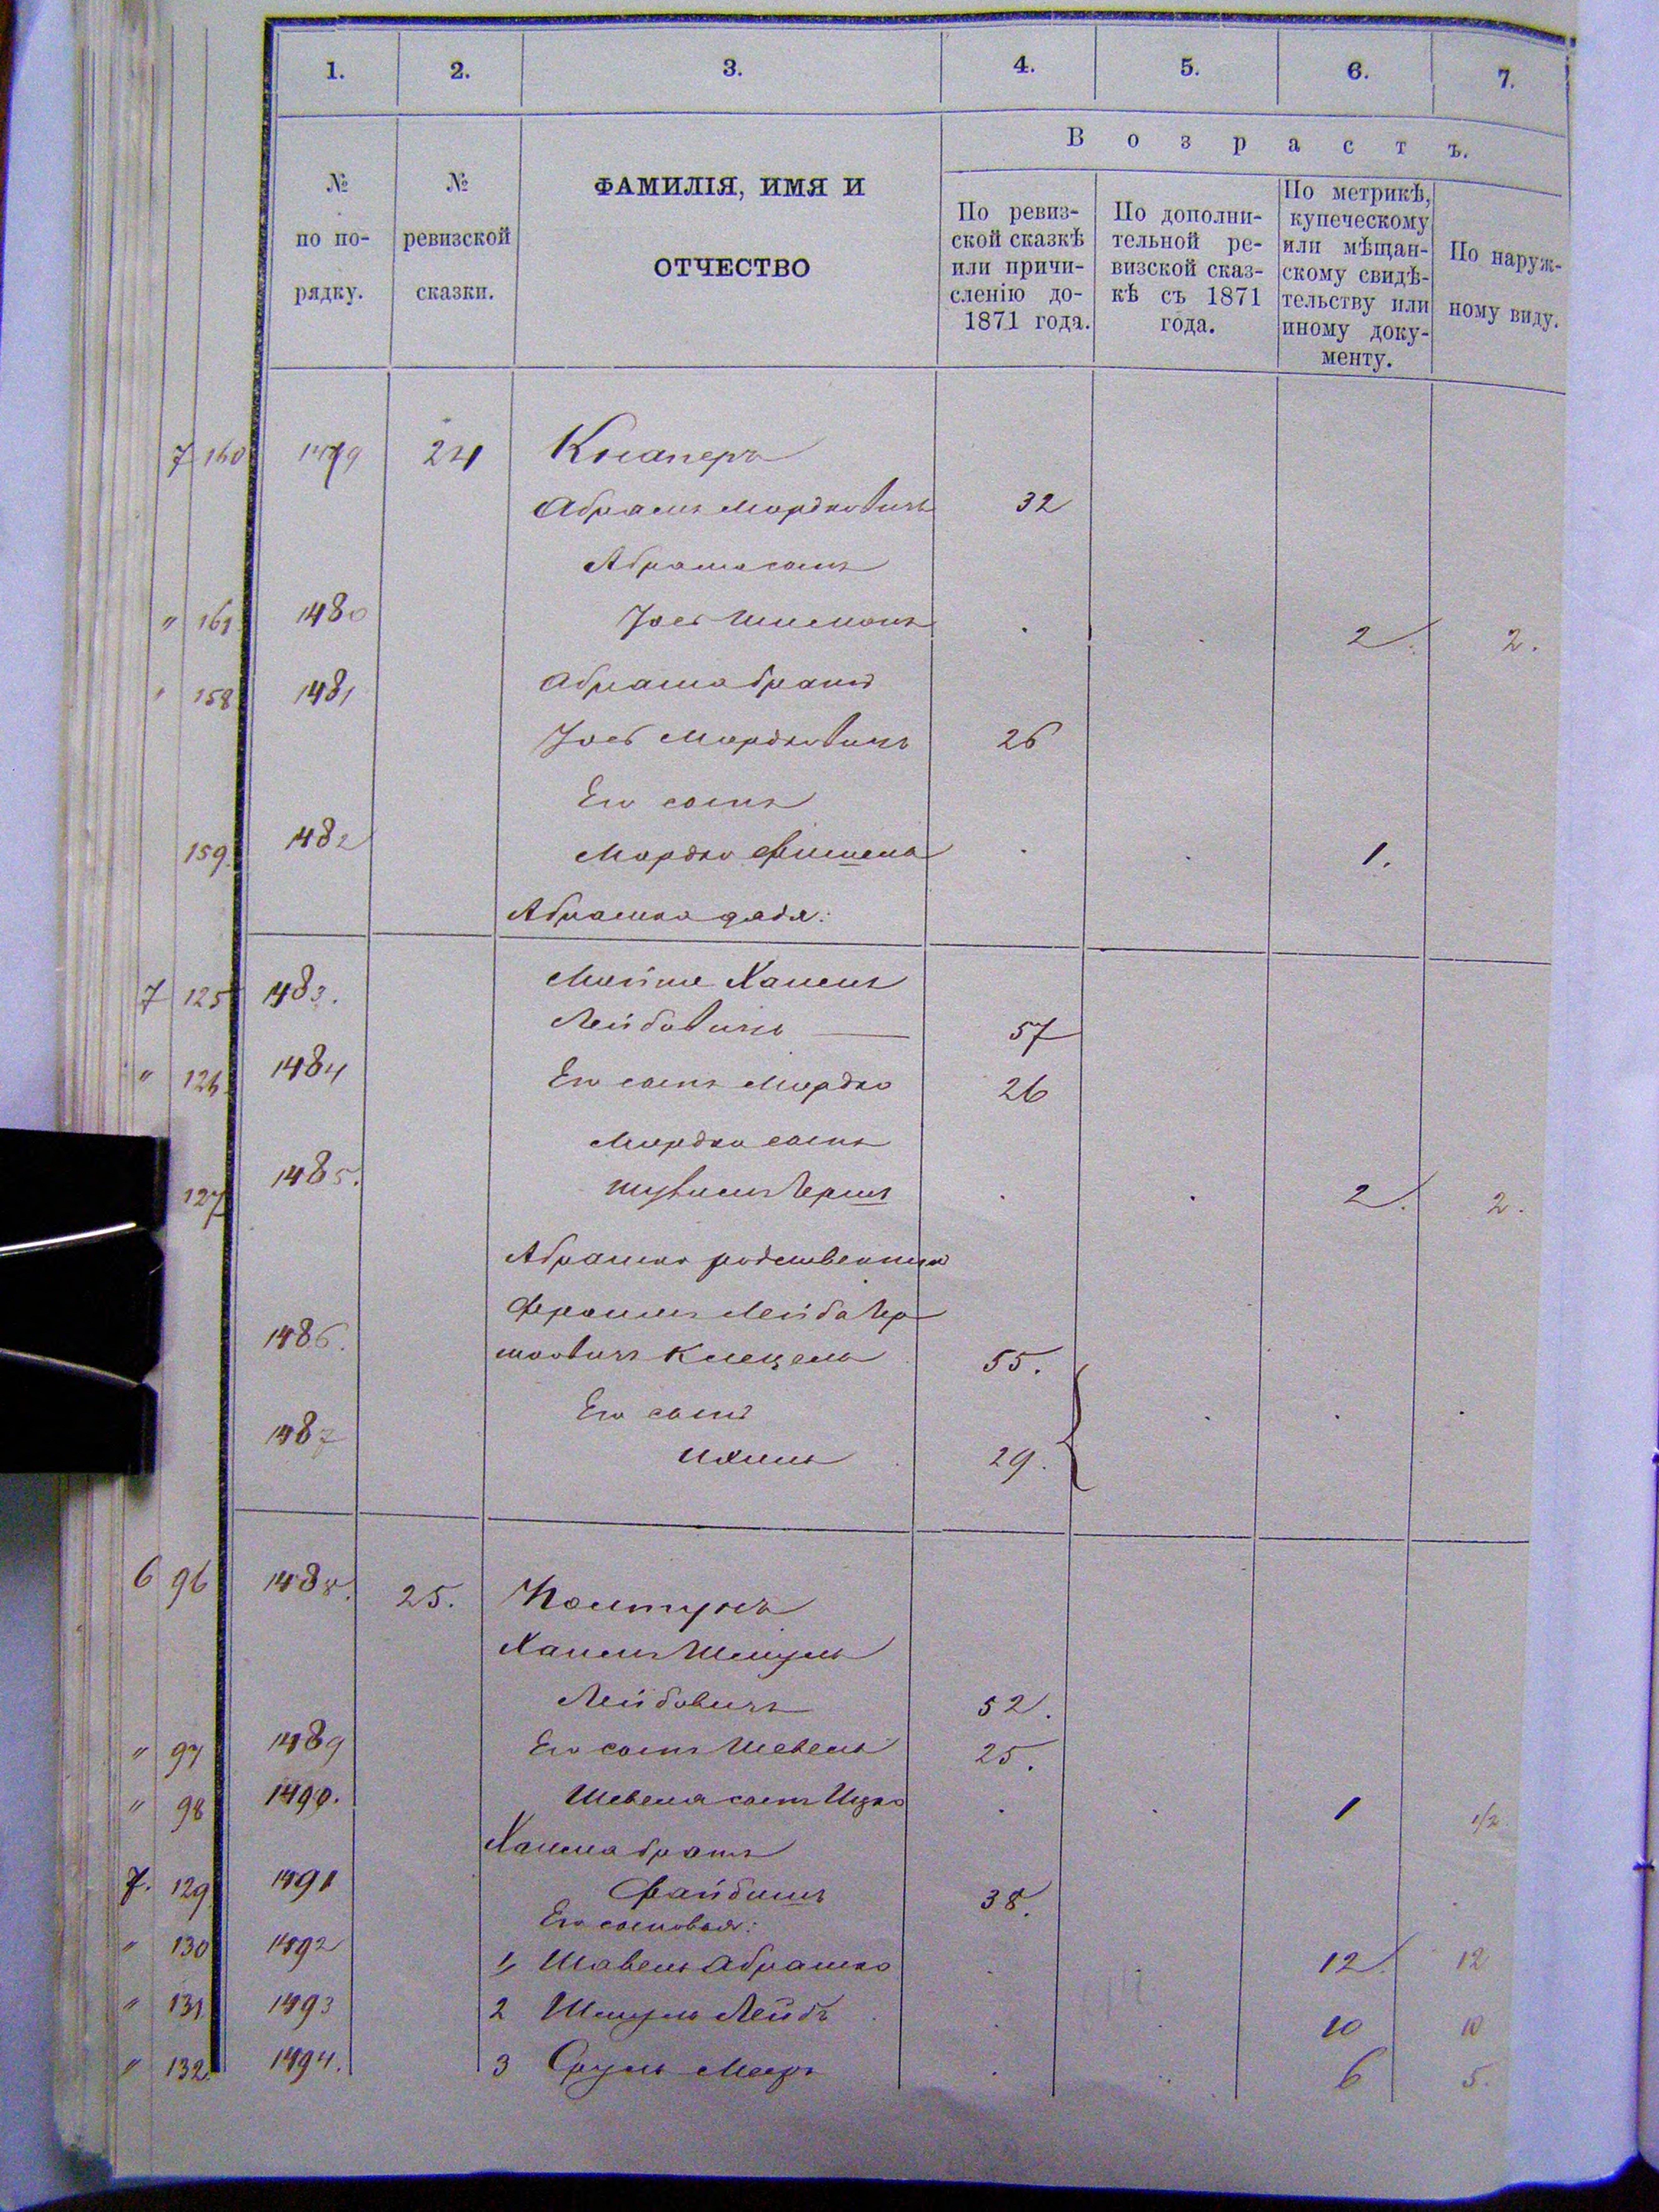 1. 2. 3. 4. 5. 6. 7.
В о з р а с т ъ.
№ по по- рядку.
№ ревизской сказки.
ФАМИЛІЯ, ИМЯ И
ОТЧЕСТВО
По ревиз- ской сказкѣ или причи- сленію до- 1871 года.
По дополни- тельной ре- визской сказ- кѣ съ 1871 года.
По метрикѣ, купеческому или мѣщан- скому свидѣ- тельству или иному доку- менту.
По наруж- ному виду.
7 160 1479 24 Кнаперъ
Абрамъ Мордковичъ 32
Абрама сынъ
" 161 1480 Іось 2. 2.
" 158 1481 Абрама братъ
Іось Мордковичъ 26
Его сынъ
159. 1482 Мордко Фишель 1.
Абрамка дядя:
7 125 1483. Хаимъ
Лейбовичъ 57
" 126 1484 Его сынъ Мордко 26
Мордки сынъ
127 1485. Герш 2. 2.
Абрамка родственник
Фроимъ Лейба Гер
1486. шовичъ 55.
Его сынъ
1487 Ихиль 29.
6 96 1488. 25. Колтунъ
Хаимъ Шмуль
Лейбовичъ 52.
" 97 1489 Его сынъ Шевель 25.
" 98 1490. Шевеля сынъ Ицко 1 1/2
Хаима братъ
7. 129 1491 Файбишъ 38.
Его сыновья:
" 130 1492 1, Шавель Абрамко 12. 12
" 131 1493 2 Шмуль Лейбъ 10 10
" 132. 1494. 3 Сруль Мееръ 6 5.